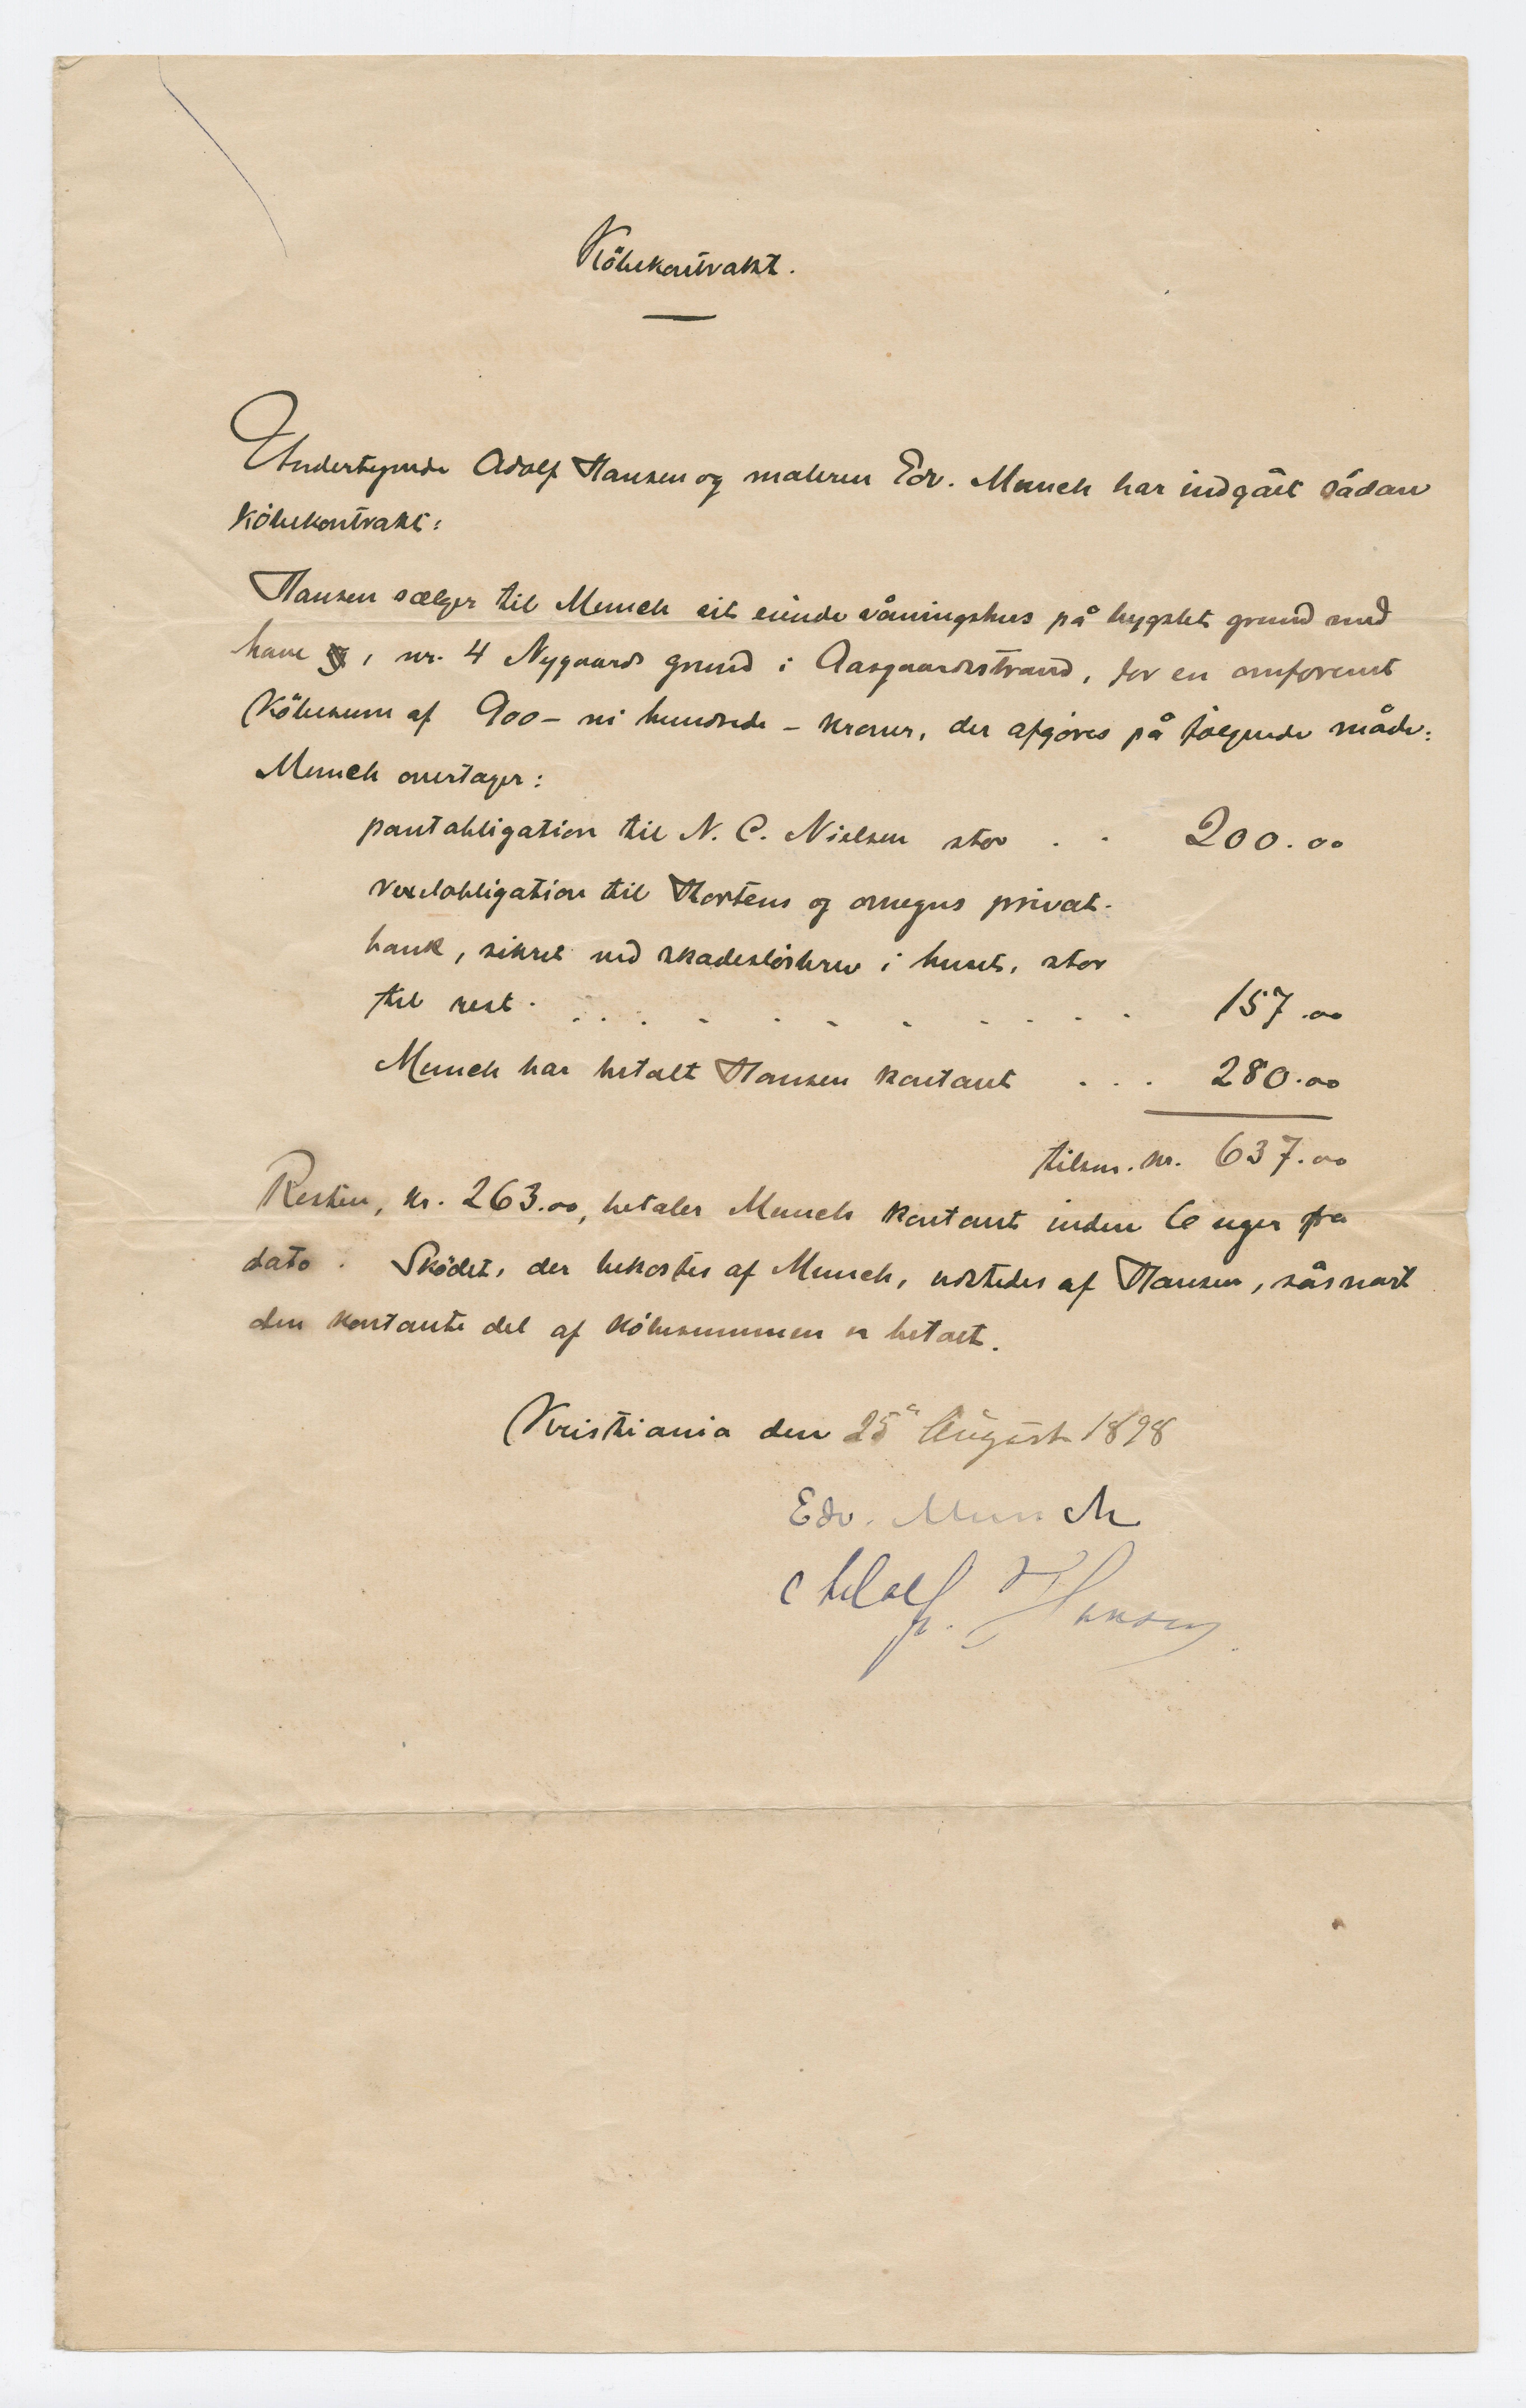 Köbekontrakt.
Undertegnede Adolf Hansen og maleren Edv. Munch har indgåt sådan
köbekontrakt:
Hansen sælger til Munch sit eiende våningshus på bygslet grund med
have, nr. 4 Nygaards grund i Aasgaardsstrand, for en omforent
Köbesum af 900 – ni hundrede – kroner, der afgöres på følgende måde:
Munch overtager:
pantobligation til N. C. Nielsen stor . . 200.00
vexelobligation til Hortens og omegns privat-
bank, sikret ved skadeslösbrev i huset, stor
til rest . . . . . . . . . . . . 157.00
Munch har betalt Hansen kontant . . . 280.00
tilsm. kr. 637.00
Resten, kr. 263.00, betaler Munch kontant inden 6 uger fra
dato. Sködet, der bekostes af Munch, udstedes af Hansen, såsnart
den kontante del af köbesummen er betalt.
Kristiania den 25 August 1898
Edv. Munch
Adolf. Hansen